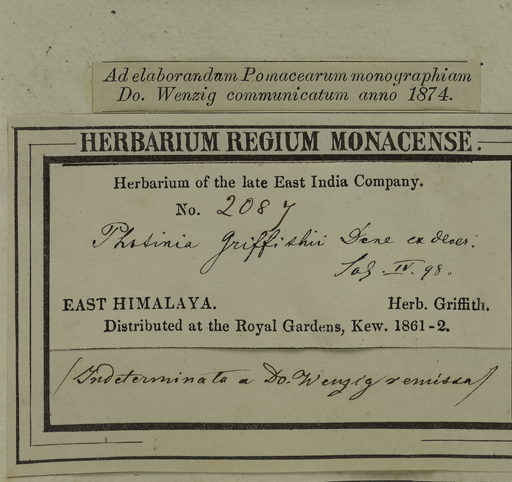 Ad elaborandam Pomacearum monographiam
Do. Wenzig communicatum anno 1874.
HERBARIUM REGIUM MONACENSE.
Herbarium of the late East India Company.
No. 2087
Photinia Griffithii Dcne ex descr.
IV. 98.
EAST HIMALAYA. Herb. Griffith.
Distributed at the Royal Gardens, Kew. 1861-2.
(Indeterminata a Do. Wenzig remissa)